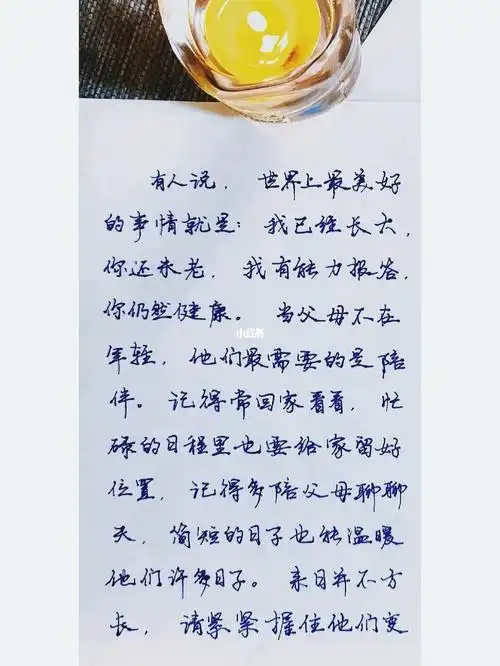 有人说，世界上最美好
的事情就是：我已经长大，
你还未老，我有能力报答，
你仍然健康。当父母不在
小红书
年轻，他们最需要的是陪
伴。记得常回家看看，忙
碌的日程里也要给家留好
位置，记得多陪父母聊聊
天，简短的日子也能温暖
他们许多日子。来日并不方
长，请紧紧握住他们变